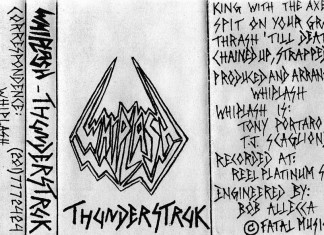 CORRESPONDENCE: (201)777-2484
WHIPLASH
WHIPLASH - THUNDERSTRUK
WHIPLASH
THUNDERSTRUK
KING WITH THE AXE
SPIT ON YOUR GRA
THRASH 'TILL DEAT
CHAINED UP, STRAPPE
PRODUCED AND ARRAN
WHIPLASH
WHIPLASH IS:
TONY PORTARO
T.J. SCAGLION
RECORDED AT:
REEL PLATINUM S
ENGINEERED BY:
BOB ALLECCA
© FATAL MUSI